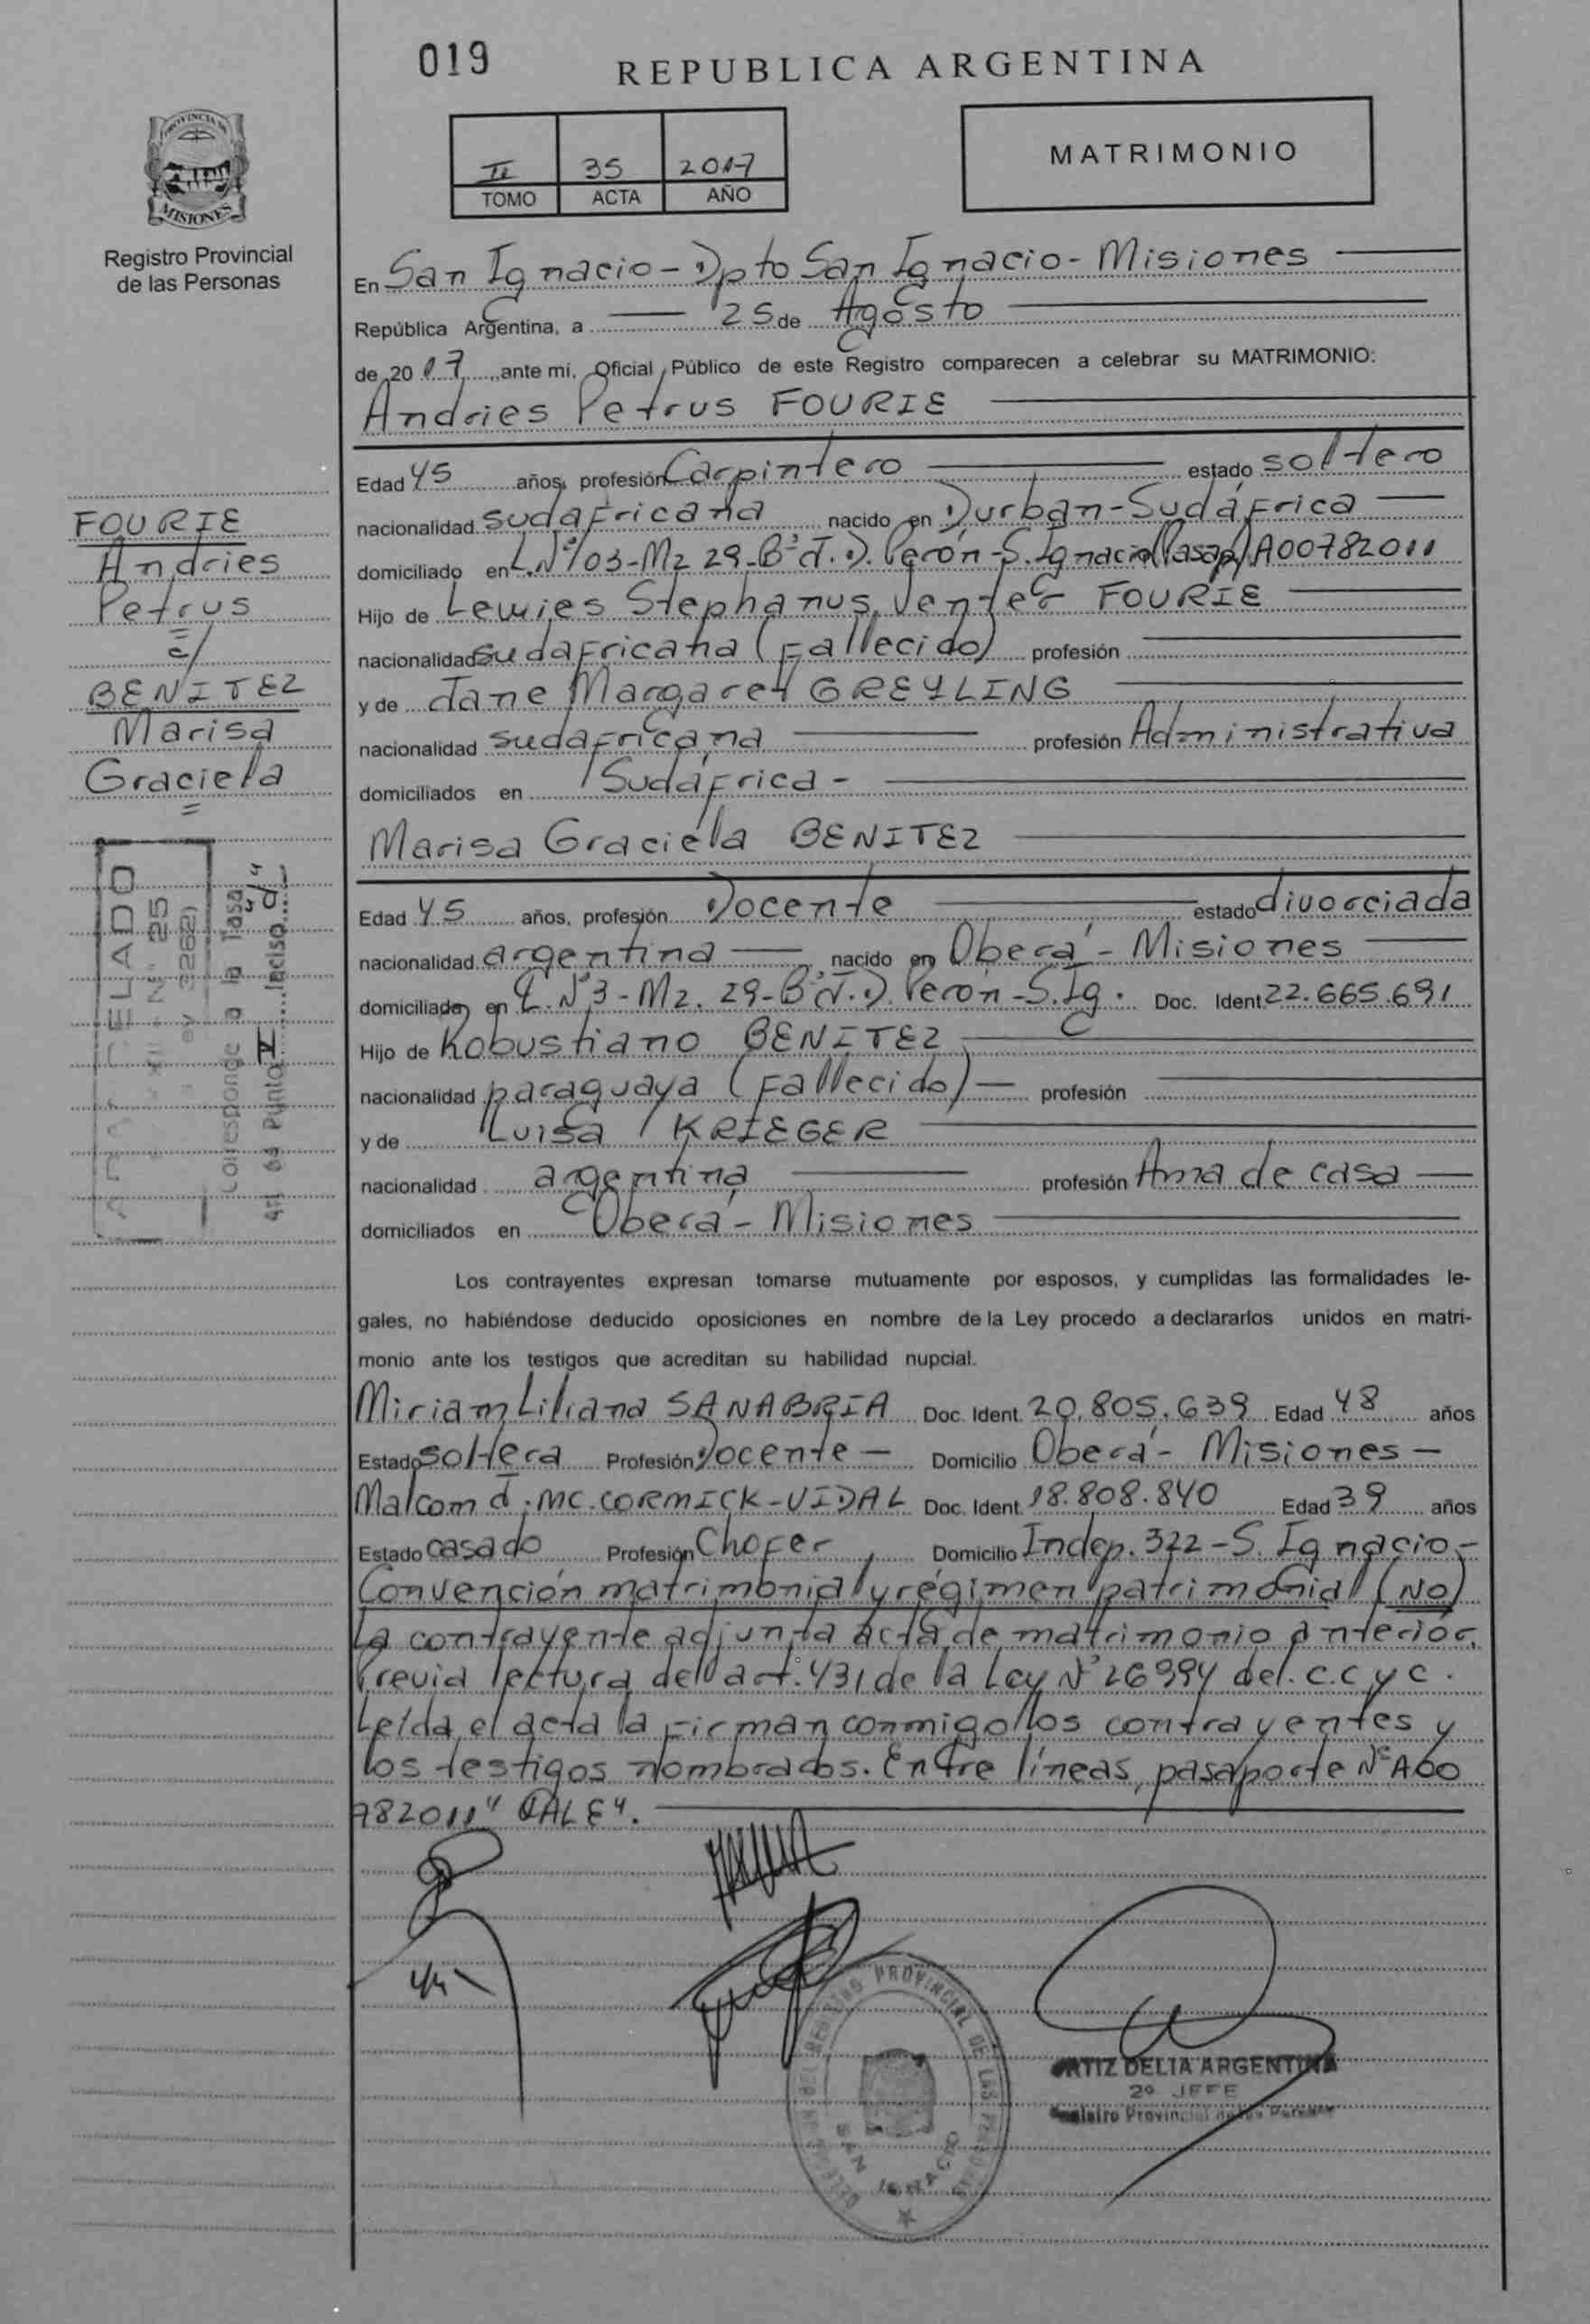 019
REPUBLICA ARGENTINA
PROVINCIA DE
MISIONES
Registro Provincial
de las Personas
II 35 2017
TOMO ACTA AÑO
MATRIMONIO
En San Ignacio - Dpto San Ignacio - Misiones
República Argentina, a 25 de Agosto
de 2017 ante mi, Oficial Público de este Registro comparecen a celebrar su MATRIMONIO:
Andries Petrus FOURIE
Edad 45 años, profesión Carpintero estado soltero
nacionalidad sudafricana nacido en Durban - Sudáfrica
domiciliado en L.Nº103-Mz 29-Bº J.D. Perón-S.Ignacio(Pasap)A00782011
Hijo de Lewies Stephanus Venter FOURIE
nacionalidad sudafricana (Fallecido) profesión
y de Jane Margaret GREYLING
nacionalidad sudafricana profesión Administrativa
domiciliados en Sudáfrica -
Marisa Graciela BENITEZ
Edad 45 años, profesión Docente estado divorciada
nacionalidad argentina nacido en Oberá - Misiones
domiciliado en L.Nº3-Mz.29-Bº J.D. Perón-S.Ig. Doc. Ident 22.665.691
Hijo de Robustiano BENITEZ
nacionalidad paraguaya (Fallecido) profesión
y de Luisa KRIEGER
nacionalidad argentina profesión Ama de casa
domiciliados en Oberá - Misiones
Los contrayentes expresan tomarse mutuamente por esposos, y cumplidas las formalidades le-
gales, no habiéndose deducido oposiciones en nombre de la Ley procedo a declararlos unidos en matri-
monio ante los testigos que acreditan su habilidad nupcial.
Miriam Liliana SANABRIA Doc. Ident. 20.805.639 Edad 48 años
Estado soltera Profesión Docente - Domicilio Oberá - Misiones -
Malcom J. MC.CORMICK-VIDAL Doc. Ident. 18.808.840 Edad 39 años
Estado casado Profesión Chofer Domicilio Indep. 322-S. Ignacio-
Convención matrimonial y régimen patrimonial (NO)
La contrayente adjunta acta de matrimonio anterior.
Previa lectura del art. 431 de la Ley Nº 26994 del C.C y C.
Leída el acta la firman conmigo los contrayentes y
los testigos nombrados. Entre líneas, pasaporte Nº A00
782011" VALE".
FOURIE
Andries
Petrus
=
c/
BENITEZ
Marisa
Graciela
=
ELADO
Nº 25
3262)
Corresponde a la Tasa
Art 63 Punto V Inciso "d"
DELEGACION DEL REGISTRO PROVINCIAL DE LAS PERSONAS
SAN IGNACIO
ORTIZ DELIA ARGENTINA
2º JEFE
Registro Provincial de las Personas